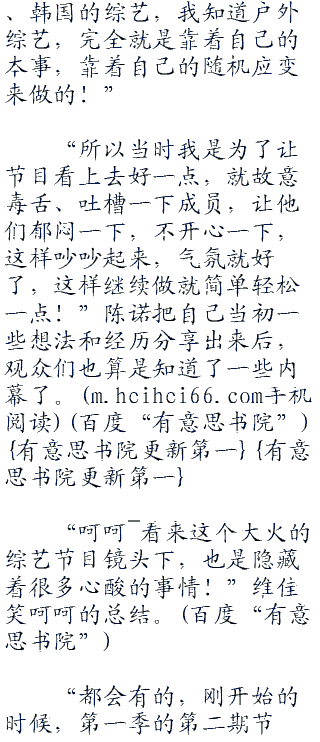 、韩国的综艺，我知道户外
综艺，完全就是靠着自己的
本事，靠着自己的随机应变
来做的！”
“所以当时我是为了让
节目看上去好一点，就故意
毒舌、吐槽一下成员，让他
们郁闷一下，不开心一下，
这样吵吵起来，气氛就好
了，这样继续做就简单轻松
一点！”陈诺把自己当初一
些想法和经历分享出来后，
观众们也算是知道了一些内
幕了。(m.hcihci66.com手机
阅读)(百度“有意思书院”)
{有意思书院更新第一}{有意
思书院更新第一}
“呵呵~看来这个大火的
综艺节目镜头下，也是隐藏
着很多心酸的事情！”维佳
笑呵呵的总结。(百度“有意
思书院”)
“都会有的，刚开始的
时候，第一季的第二期节